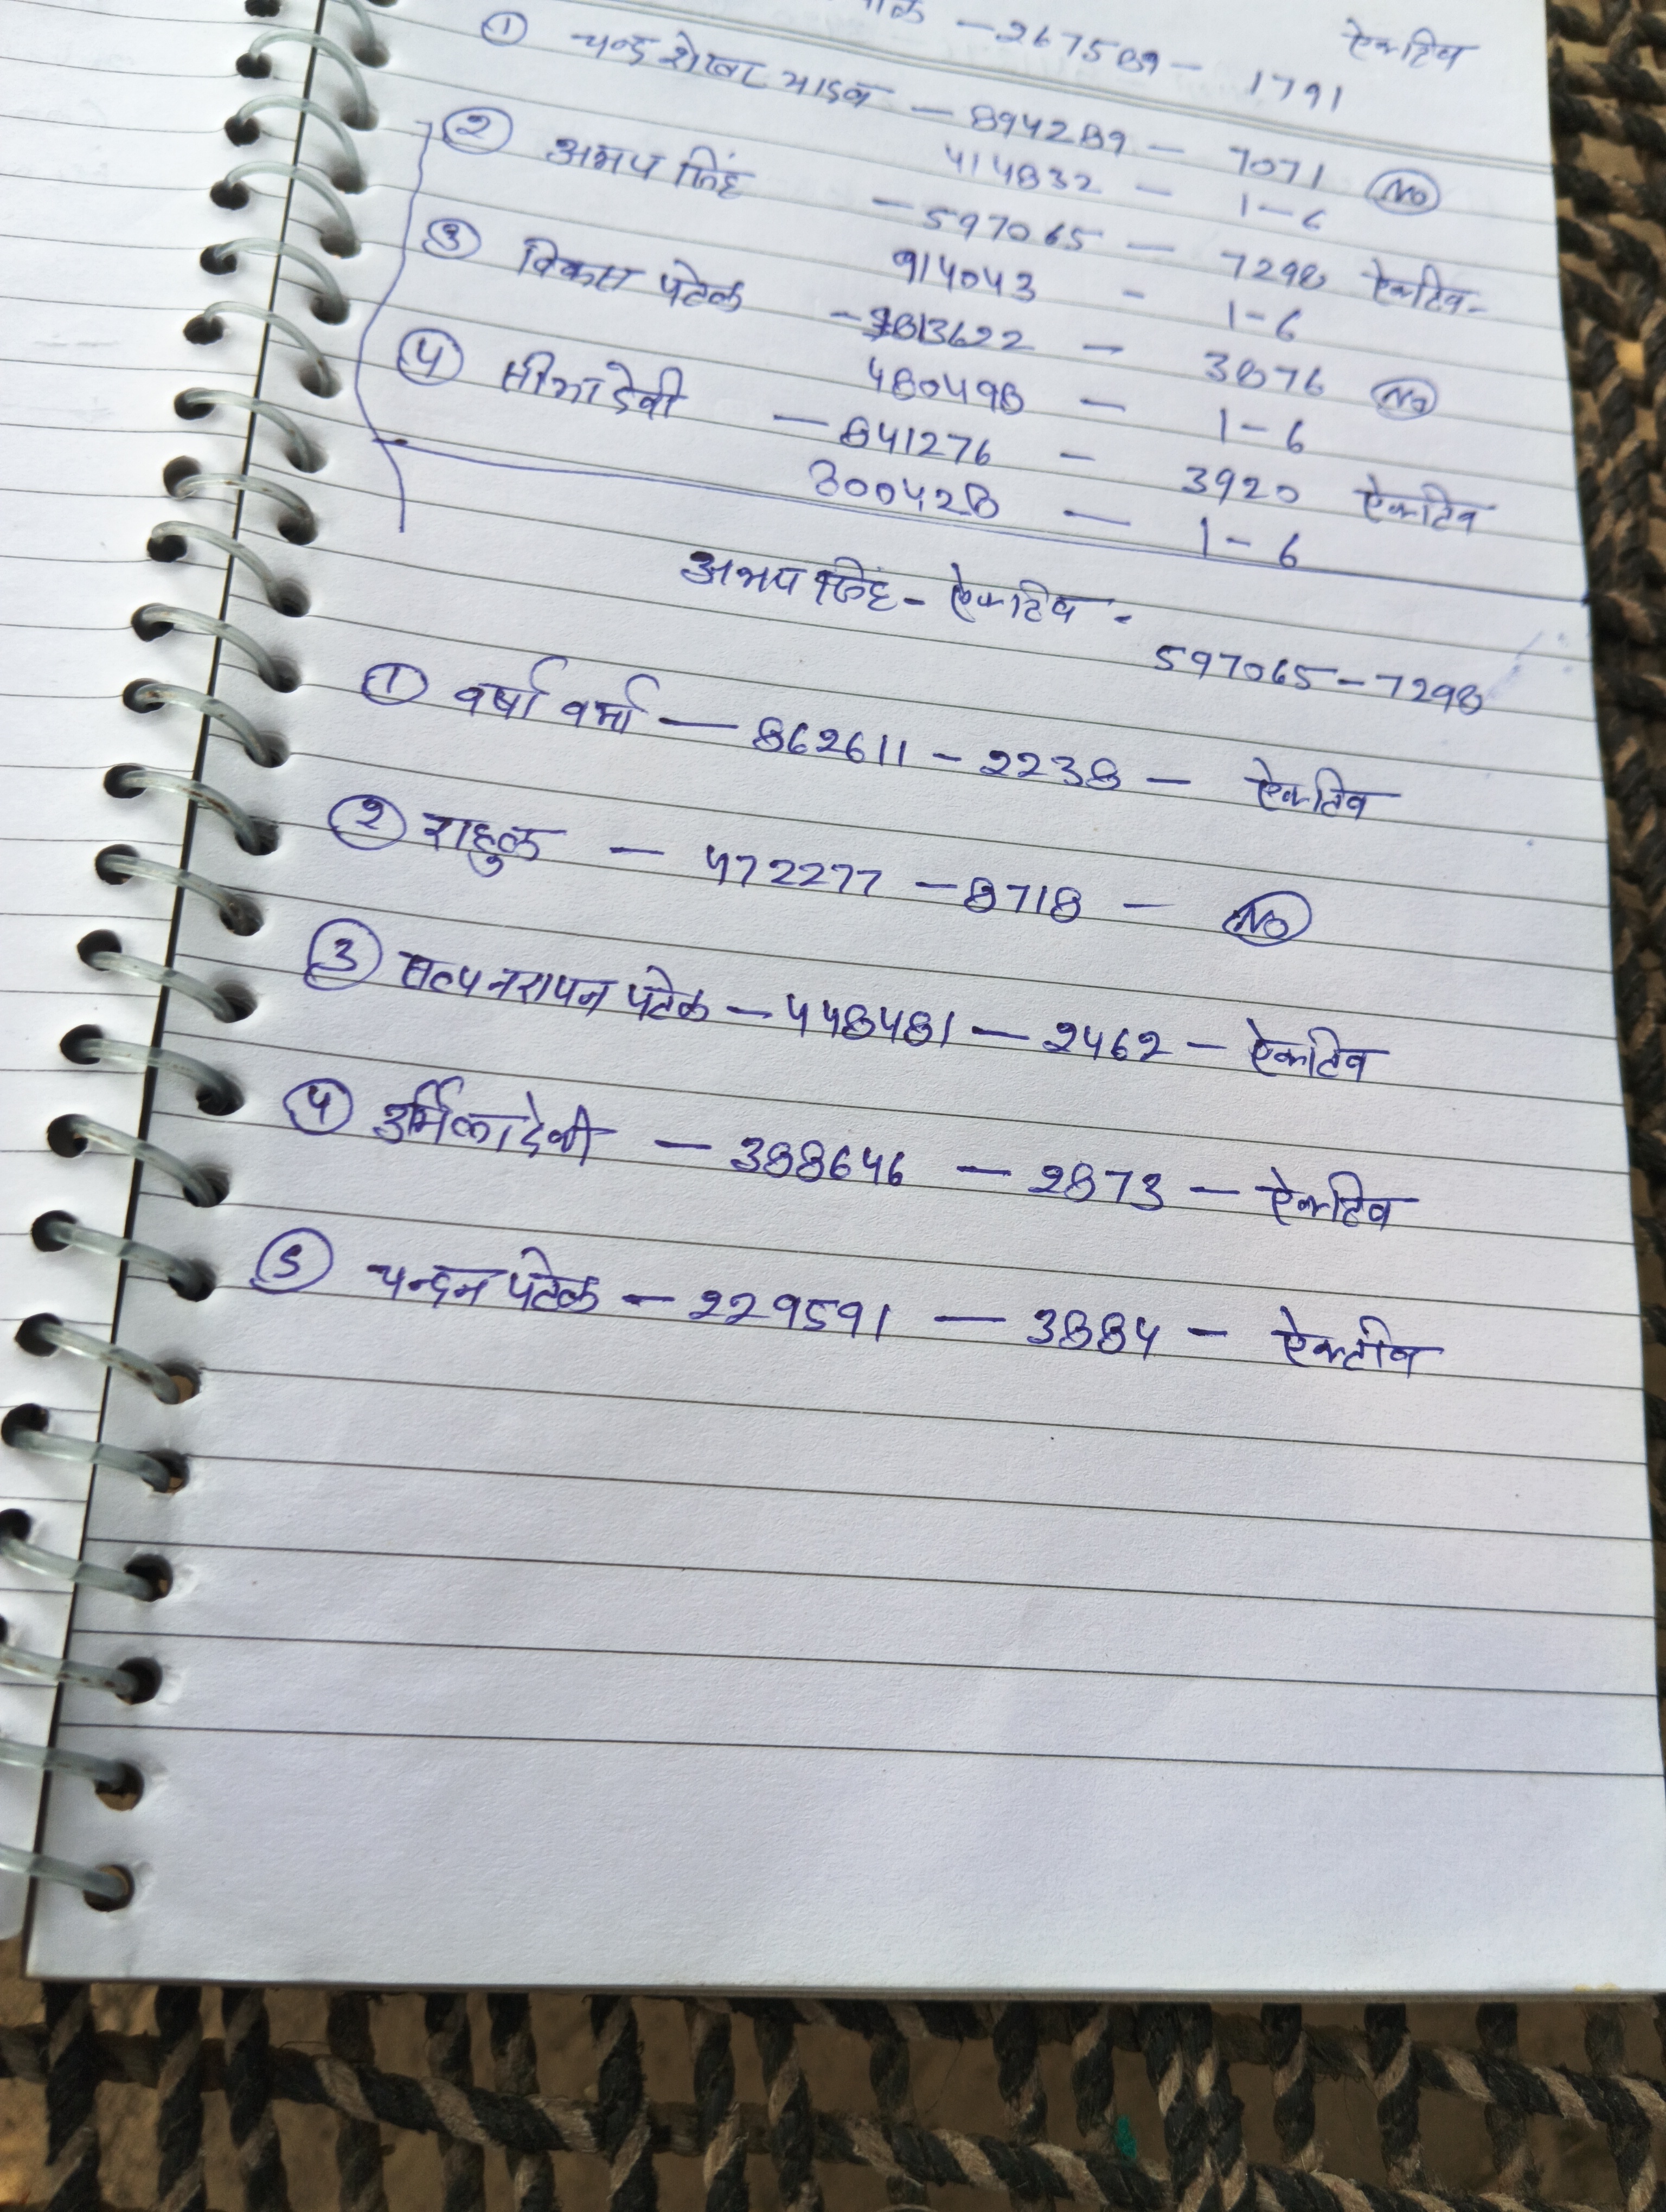 – 267589 – 1791 ऐक्टिव
① चन्द्रशेखर यादव – 894289 – 7071 NO
414832 – 1-6
② अभय सिंह – 597065 – 7298 ऐक्टिव -
914043 - 1-6
③ विकास पटेल – 813622 – 3876 NO
480498 – 1-6
④ सीमा देवी – 841276 – 3920 ऐक्टिव
800428 – 1-6
अभय सिंह - ऐक्टिव -
597065 – 7298
① वर्षा वर्मा – 862611 – 2238 – ऐक्टिव
② राहुल – 472277 – 8718 – NO
③ सत्य नरायन पटेल – 448481 – 2462 – ऐक्टिव
④ उर्मिला देवी – 388646 – 2873 – ऐक्टिव
⑤ चन्दन पटेल – 229591 – 3884 – ऐक्टीव